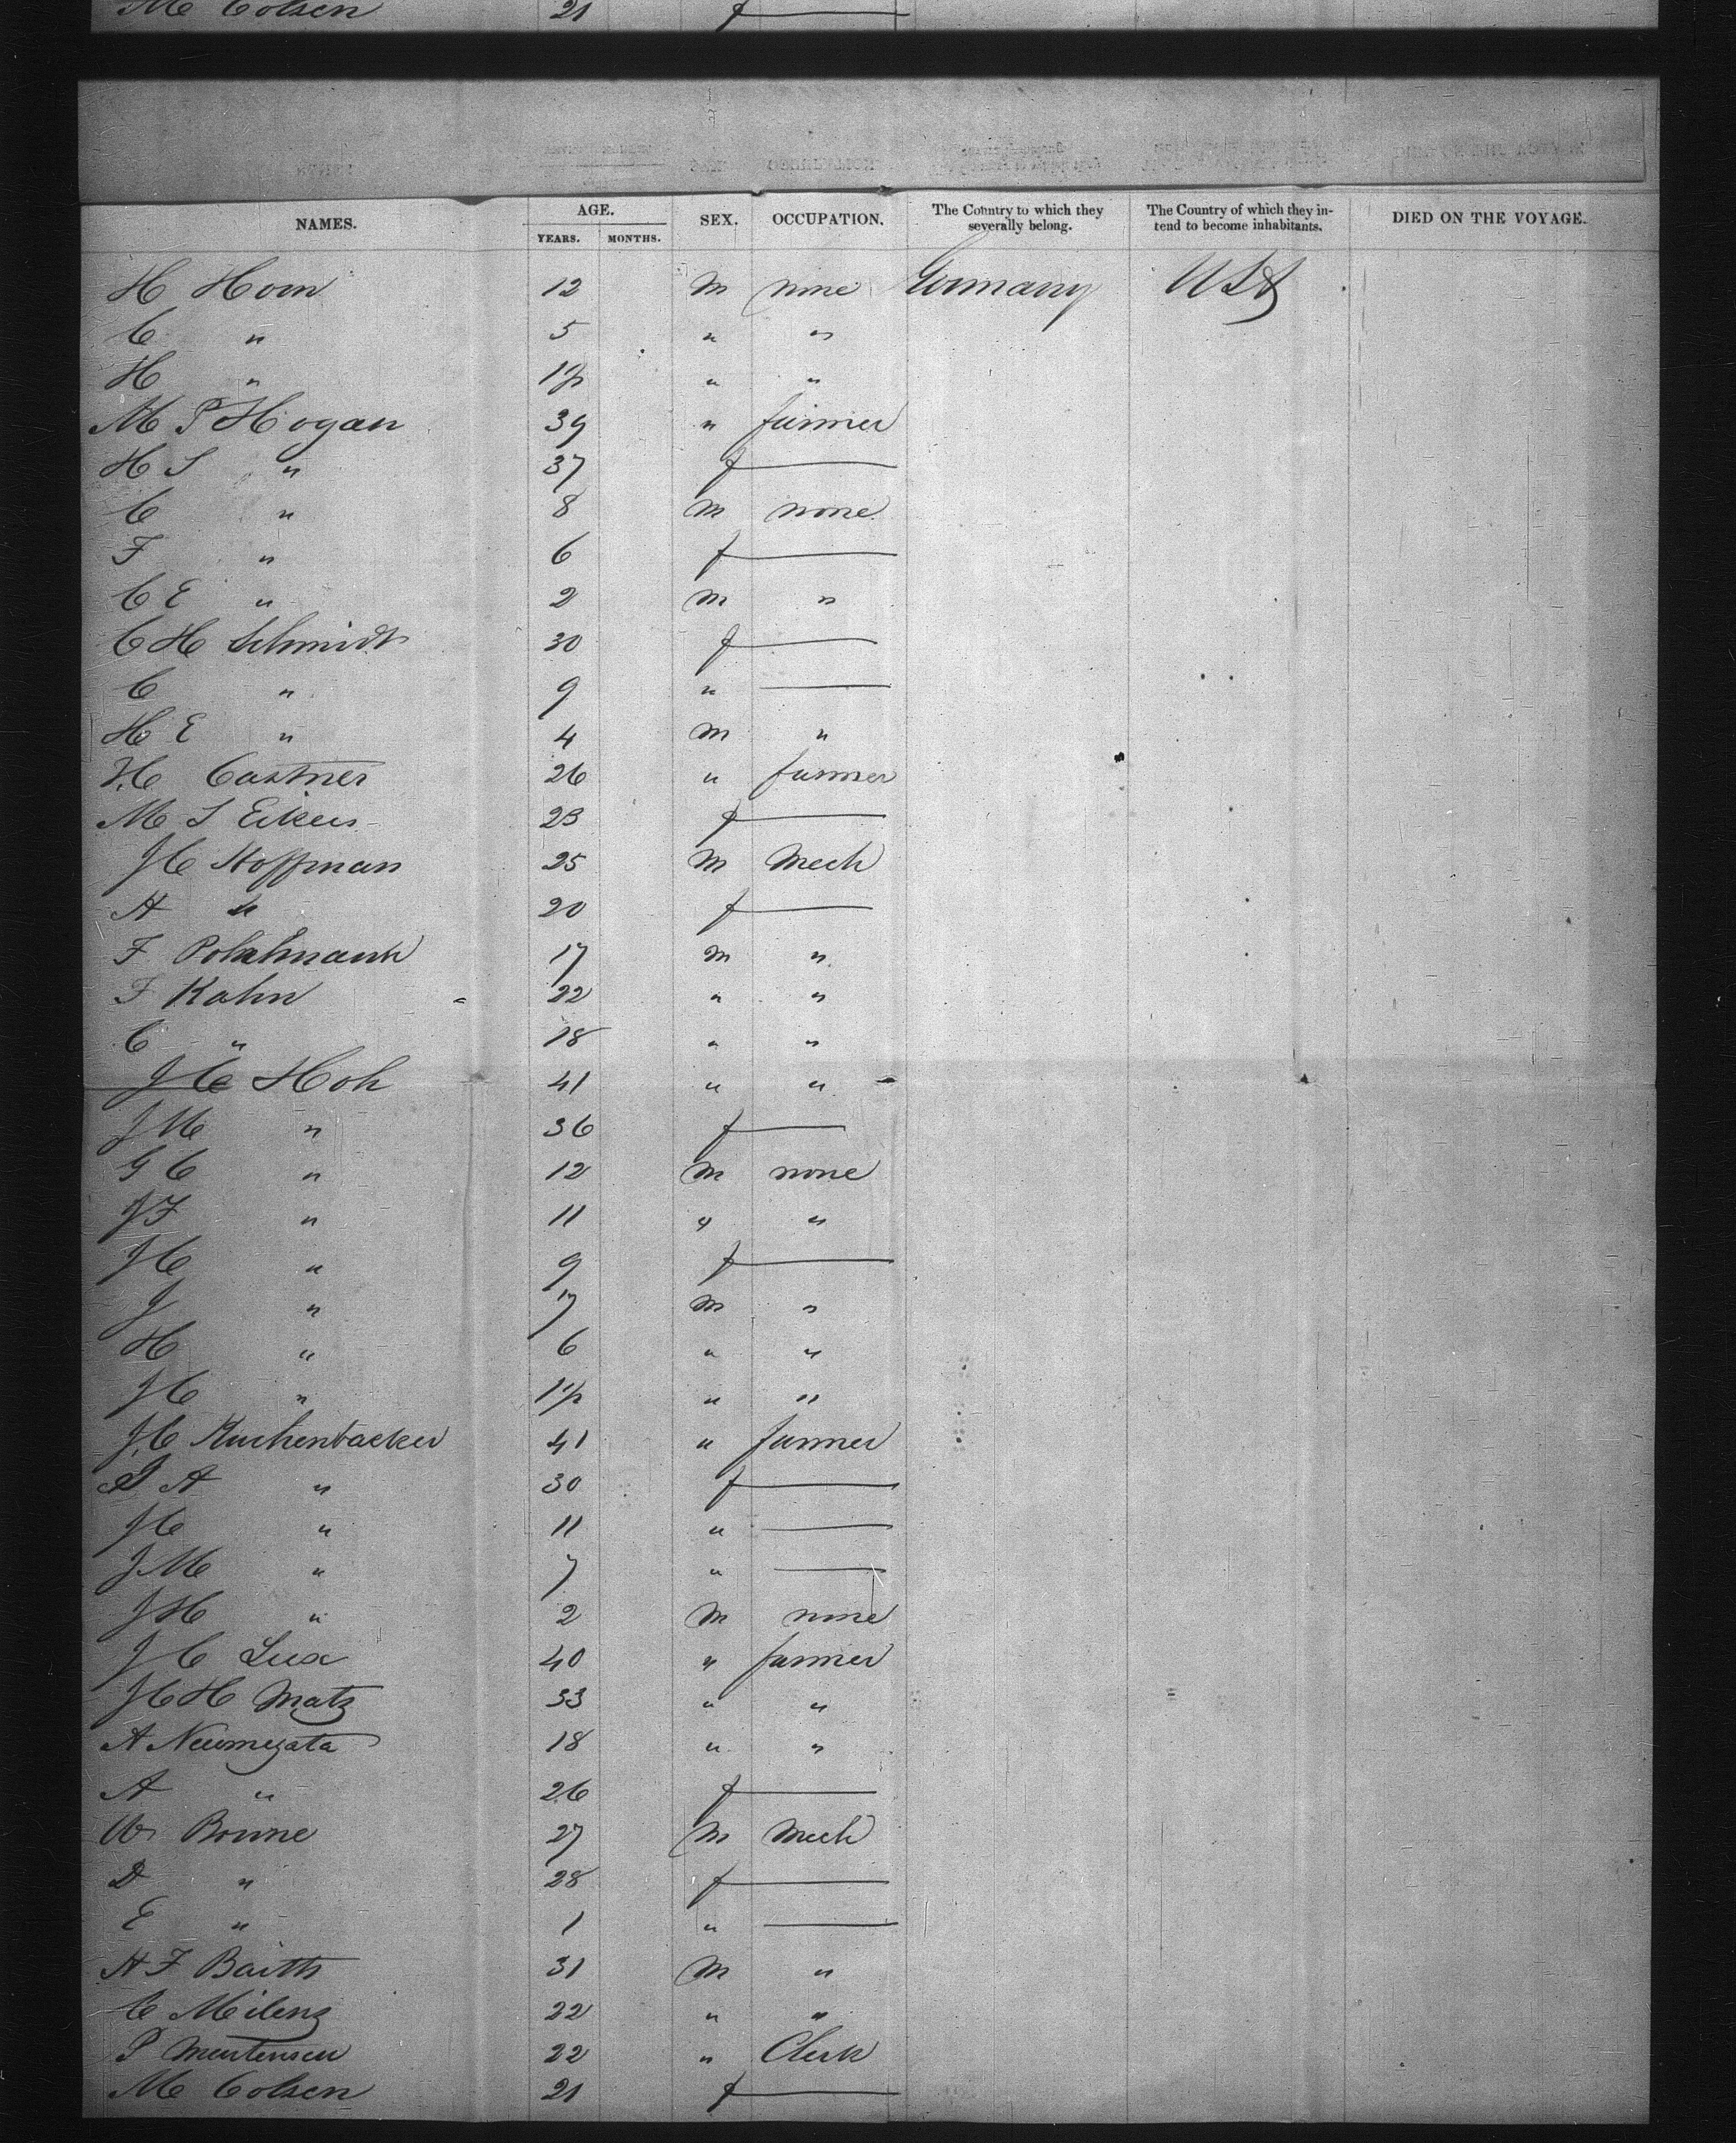 M Colsen 21 f
NAMES. AGE. SEX. OCCUPATION. The Country to which they severally belong. The Country of which they intend to become inhabitants. DIED ON THE VOYAGE.
YEARS. MONTHS.
H Horn 12 m none Germany USA
C " 5 " "
H " " "
M P Hogan 39 " farmer
H S " 37 f
C " 8 m none
F " 6 f
C E " 2 m "
C H Schmidt 30 f
C " 9 "
H E " 4 m "
H Castner 26 " farmer
M S Eikers 23 f
J C Hoffman 25 m Mech
A " 20 f
F 17 m "
F Kahn 22 " "
C " 18 " "
J C Hoh 41 " "
J M " 36 f
G C " 12 m none
J F " 11 " "
J C " 9 f
J " 7 m "
H " 6 " "
J C " " "
J C Kuchenbacker 41 " farmer
A " 30 f
J C " 11 "
J M " 7 "
J H " 2 m none
J C Lux 40 " farmer
J C H Matz 33 " "
A 18 " "
A " 26 f
W Brune 27 m Mech
D " 28 f
E " 1 "
H F Barth 31 m "
C Milenz 22 " "
P Mertensen 22 " Clerk
M Colsen 21 f